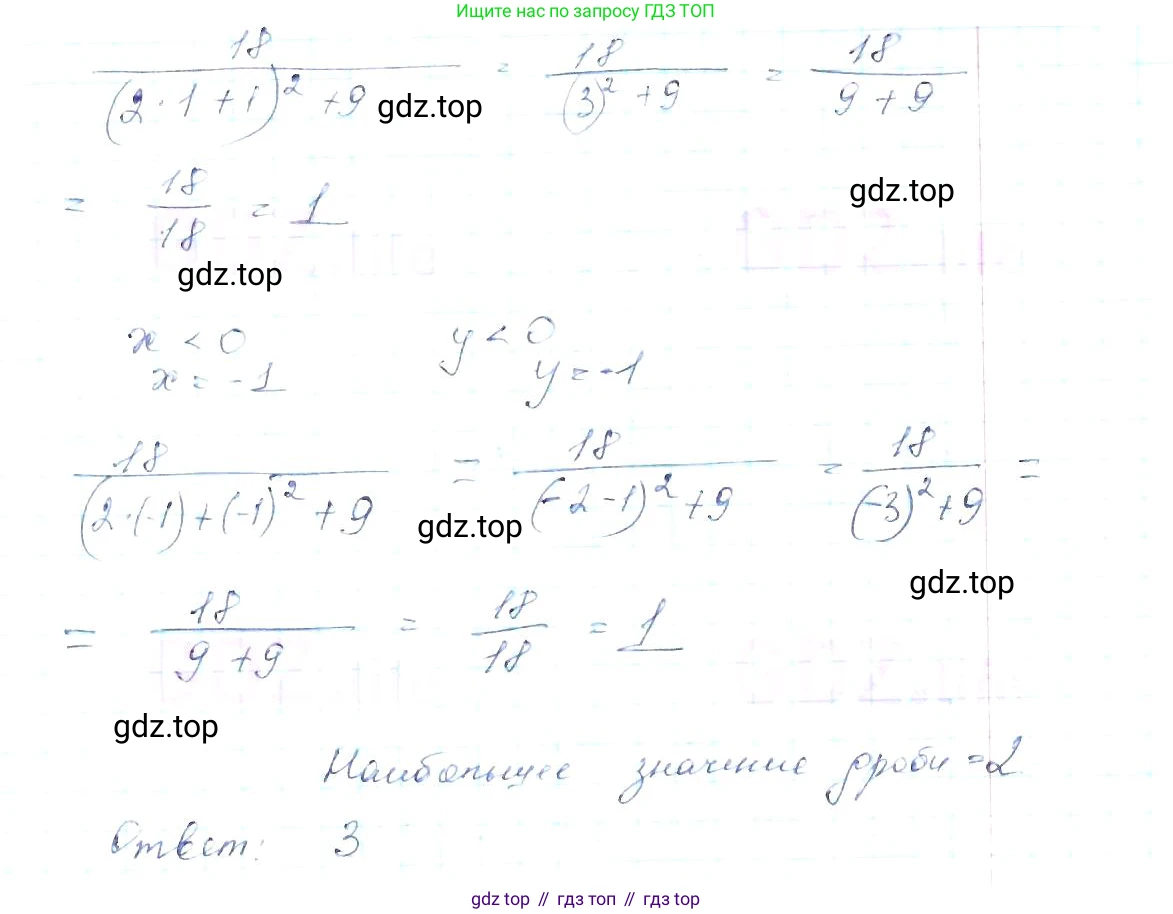 Ищите нас по запросу ГДЗ ТОП
18 / (2·1+1)² +9 = 18 / (3)² +9 = 18 / 9+9
gdz.top
= 18 / 18 = 1
gdz.top
gdz.top
x < 0 y < 0
x = -1 y = -1
18 / (2·(-1)+(-1))² +9 = 18 / (-2-1)² +9 = 18 / (-3)² +9 =
gdz.top
gdz.top
= 18 / 9+9 = 18 / 18 = 1
gdz.top
Наибольшее значение дроби =2
Ответ: 3
gdz top // гдз топ // гдз top